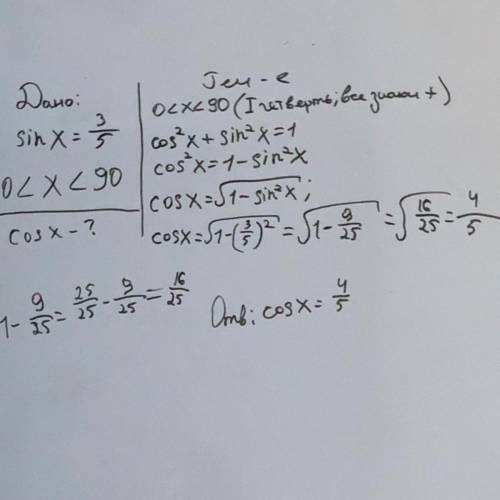 Дано:
sin x = 3/5
0 < x < 90
cos x - ?
Реш-е
0 < x < 90 (I четверть; все знаки +)
cos²x + sin²x = 1
cos²x = 1 - sin²x
cos x = √(1 - sin²x);
cos x = √(1 - (3/5)²) = √(1 - 9/25) = √(16/25) = 4/5
1 - 9/25 = 25/25 - 9/25 = 16/25
Отв: cos x = 4/5